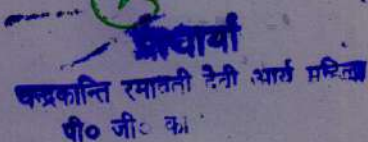 प्राचार्या
चन्द्रकान्ति रमावती देवी आर्य महिला
पी० जी० का